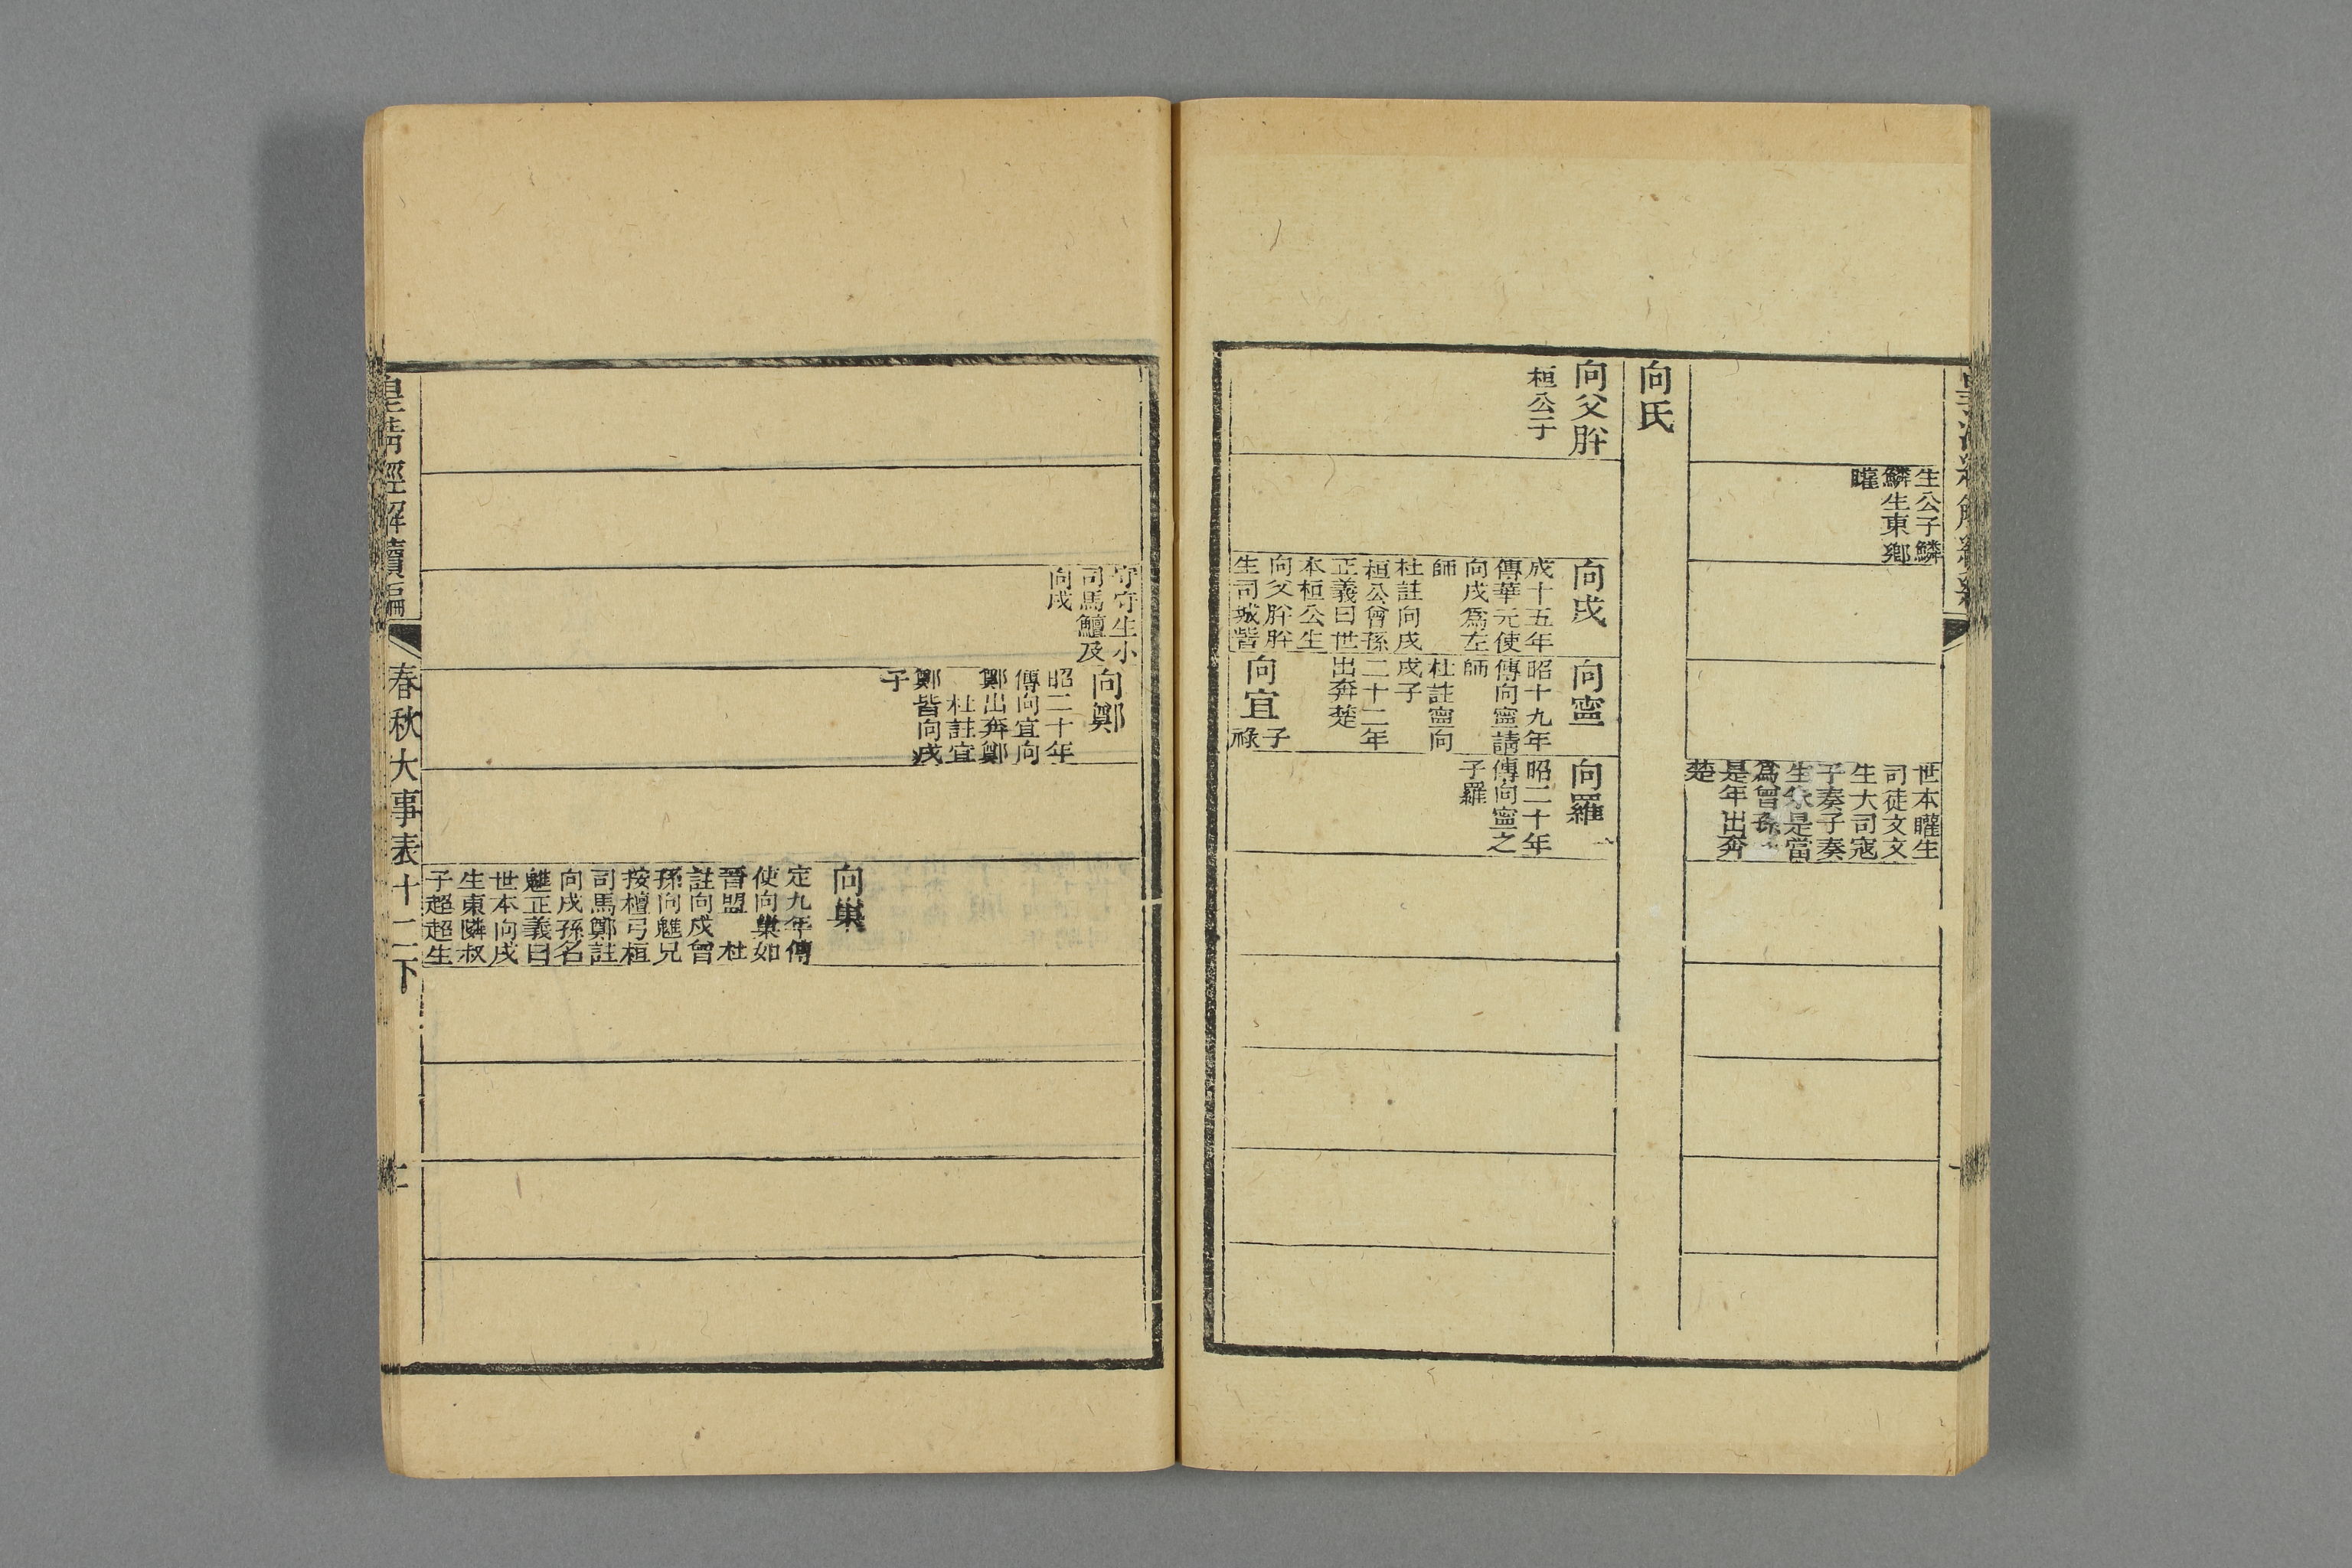 生公子鱗
鱗生東鄉
矔
世本矔生
司徒文文
生大司寇
子奏子奏
生朱是當
爲曾孫
是年出奔
楚
向氏
向父肸
桓公子
向戌
成十五年
傳華元使
向戌爲左
師
杜註向戌
桓公曾孫
正義曰世
本桓公生
向父肸肸
生司城訾
向寧
昭十九年
傳向寧請
師
杜註寧向
戌子
二十二年
出奔楚
向宜
子
祿
向羅
昭二十年
傳向寧之
子羅
守守生小
司馬鱣及
向戌
向鄭
昭二十年
傳向宜向
鄭出奔鄭
杜註宜
鄭皆向戌
子
向巢
定九年傳
使向巢如
晉盟 杜
註向戌曾
孫向魋兄
按檀弓桓
司馬鄭註
向戌孫名
魋正義曰
世本向戌
生東鄰叔
子超超生
皇清經解續編
春秋大事表十二下